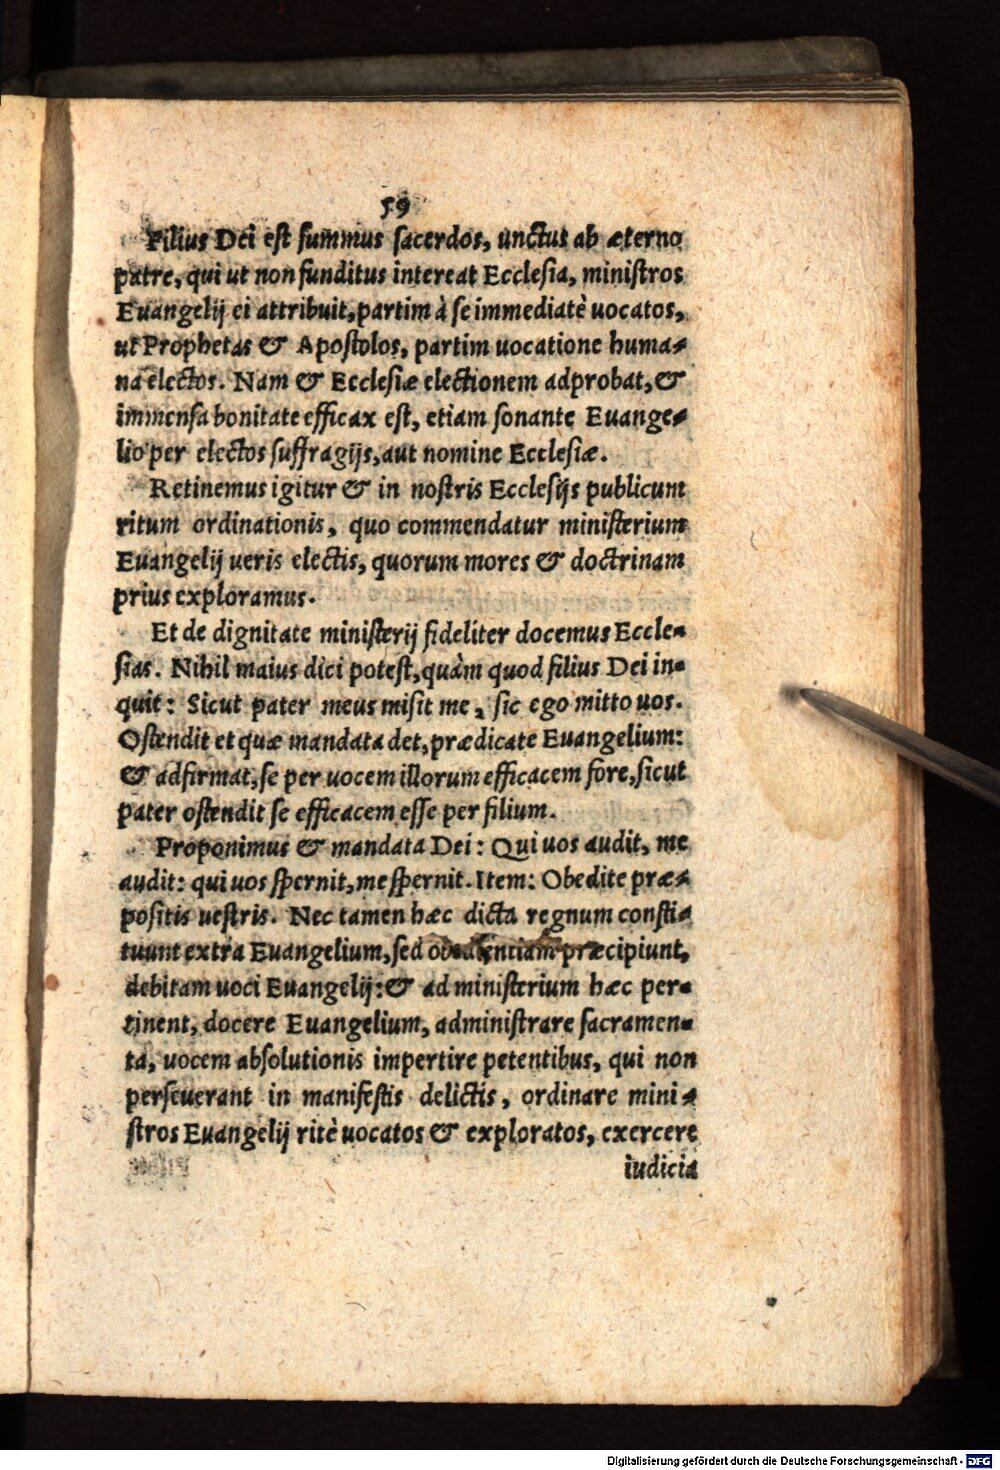 59
Filius Dei est summus sacerdos, unctus ab æterno
patre, qui ut non funditus intereat Ecclesia, ministros
Euangelij ei attribuit, partim à se immediatè uocatos,
ut Prophetas & Apostolos, partim uocatione huma-
na electos. Nam & Ecclesiæ electionem adprobat, &
immensa bonitate efficax est, etiam sonante Euange-
lio per electos suffragijs, aut nomine Ecclesiæ.
Retinemus igitur & in nostris Ecclesijs publicum
ritum ordinationis, quo commendatur ministerium
Euangelij ueris electis, quorum mores & doctrinam
prius exploramus.
Et de dignitate ministerij fideliter docemus Eccle-
sias. Nihil maius dici potest, quàm quod filius Dei in-
quit: Sicut pater meus misit me, sic ego mitto uos.
Ostendit et quæ mandata det, prædicate Euangelium:
& adfirmat, se per uocem illorum efficacem fore, sicut
pater ostendit se efficacem esse per filium.
Proponimus & mandata Dei: Qui uos audit, me
audit: qui uos spernit, me spernit. Item: Obedite præ-
positis uestris. Nec tamen hæc dicta regnum consti-
tuunt extra Euangelium, sed obedientiam præcipiunt,
debitam uoci Euangelij: & ad ministerium hæc per-
tinent, docere Euangelium, administrare sacramen-
ta, uocem absolutionis impertire petentibus, qui non
perseuerant in manifestis delictis, ordinare mini-
stros Euangelij ritè uocatos & exploratos, exercere
iudicia
Digitalisierung gefördert durch die Deutsche Forschungsgemeinschaft - DFG